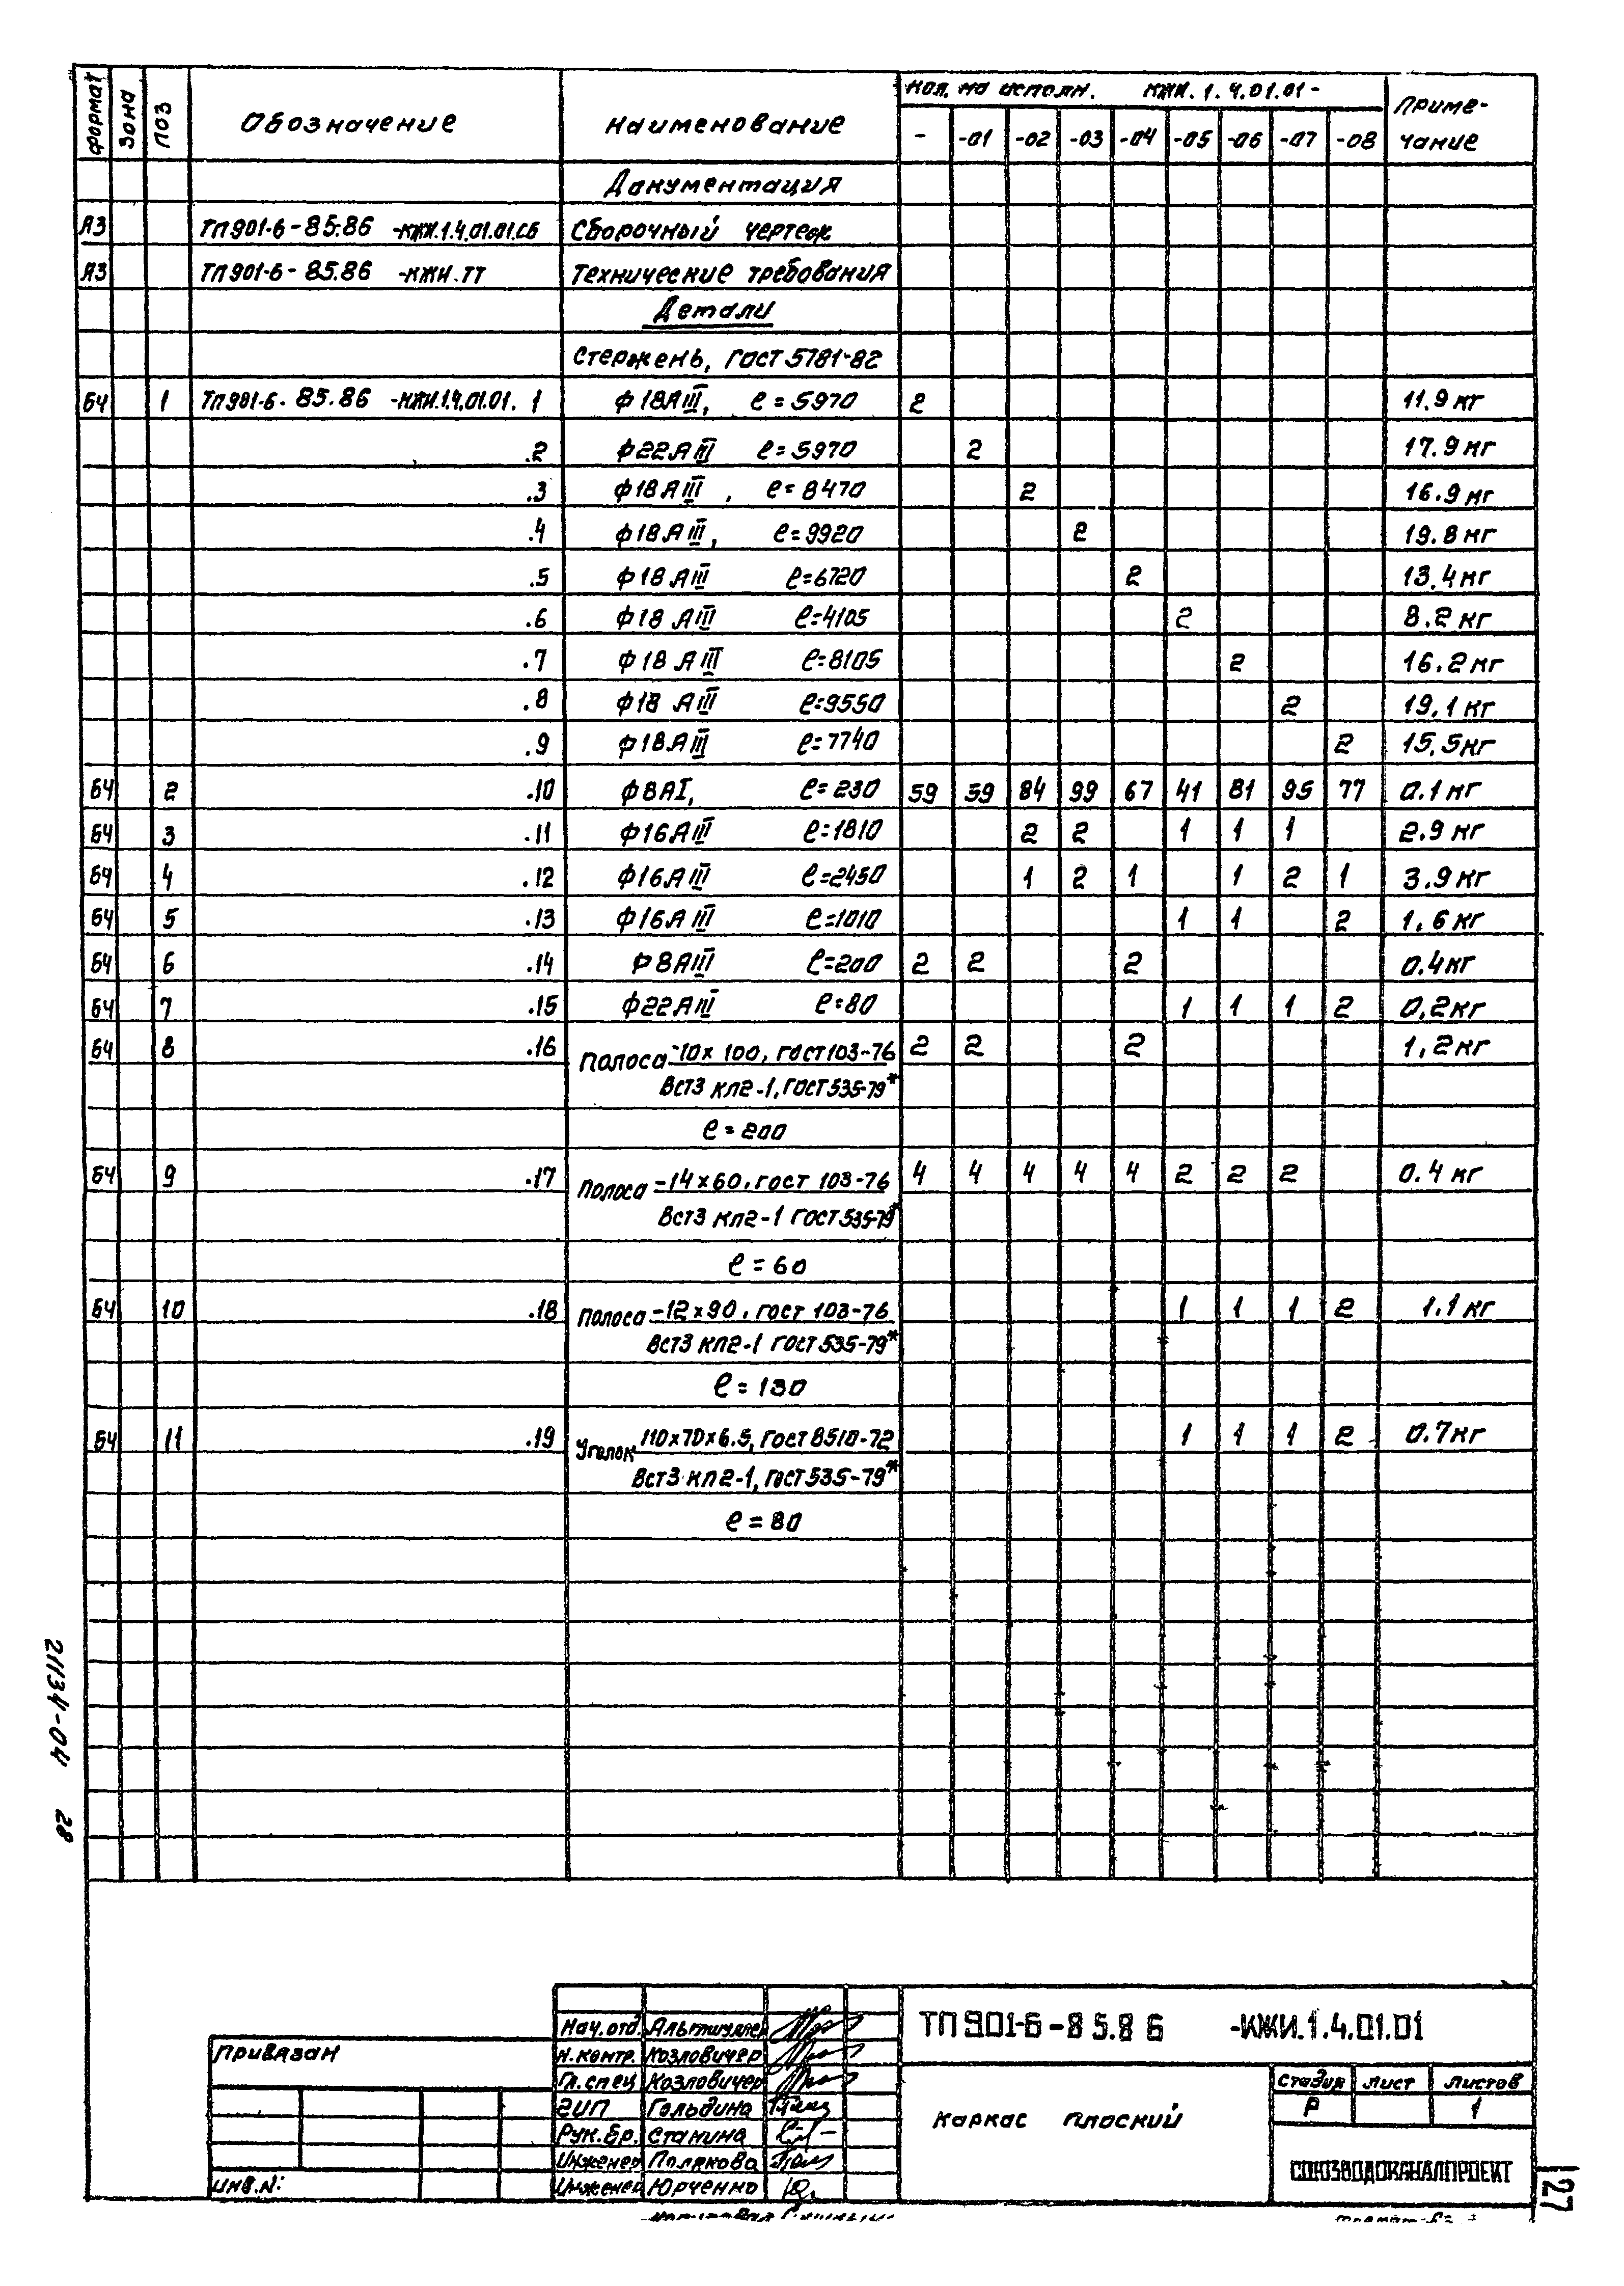 формат Зона ПОЗ Обозначение Наименование Кол. на исполн. КЖИ.1.4.01.01- Приме-
- -01 -02 -03 -04 -05 -06 -07 -08 чание
Документация
А3 ТП901-6-85.86 -КЖИ.1.4.01.01.СБ Сборочный чертеж
А3 ТП901-6-85.86 -КЖИ.ТТ Технические требования
Детали
Стержень, ГОСТ 5781-82
БЧ 1 ТП901-6-85.86 -КЖИ.1.4.01.01. 1 Ф18АIII, ℓ=5970 2 11.9 кг
.2 Ф22АIII ℓ=5970 2 17.9 кг
.3 Ф18АIII, ℓ=8470 2 16.9 кг
.4 Ф18АIII, ℓ=9920 2 19.8 кг
.5 Ф18АIII ℓ=6720 2 13.4 кг
.6 Ф18 АIII ℓ=4105 2 8.2 кг
.7 Ф18 АIII ℓ=8105 2 16.2 кг
.8 Ф18 АIII ℓ=9550 2 19,1 кг
.9 Ф18АIII ℓ=7740 2 15,5кг
БЧ 2 .10 Ф8АI, ℓ=230 59 59 84 99 67 41 81 95 77 0.1 кг
БЧ 3 .11 Ф16АIII ℓ=1810 2 2 1 1 1 2.9 кг
БЧ 4 .12 Ф16АIII ℓ=2450 1 2 1 1 2 1 3.9 кг
БЧ 5 .13 Ф16АIII ℓ=1010 1 1 2 1,6 кг
БЧ 6 .14 Ф8АIII ℓ=200 2 2 2 0.4кг
БЧ 7 .15 Ф22АIII ℓ=80 1 1 1 2 0,2кг
БЧ 8 .16 Полоса -10х100, ГОСТ103-76 2 2 2 1,2кг
ВСт3 кп2-1, ГОСТ535-79*
ℓ=200
БЧ 9 .17 Полоса -14х60, ГОСТ 103-76 4 4 4 4 4 2 2 2 0.4 кг
ВСт3 кп2-1 ГОСТ535-79*
ℓ=60
БЧ 10 .18 Полоса -12х90, ГОСТ 103-76 1 1 1 2 1.1 кг
ВСт3 кп2-1 ГОСТ535-79*
ℓ=130
БЧ 11 .19 Уголок 110х70х6.5, ГОСТ8510-72 1 1 1 2 0.7кг
ВСт3 кп2-1, ГОСТ535-79*
ℓ=80
21134-04 28
Нач.отд. Альтшулер ТП901-6-85.86 -КЖИ.1.4.01.01
Привязан
Н.контр. Козловичер
Гл.спец Козловичер
ГИП Гольдина
Рук.бр. Станина
Инженер Полякова
Инженер Юрченко
Инв.N:
Каркас плоский
Стадия Лист Листов
Р 1
СОЮЗВОДОКАНАЛПРОЕКТ
27